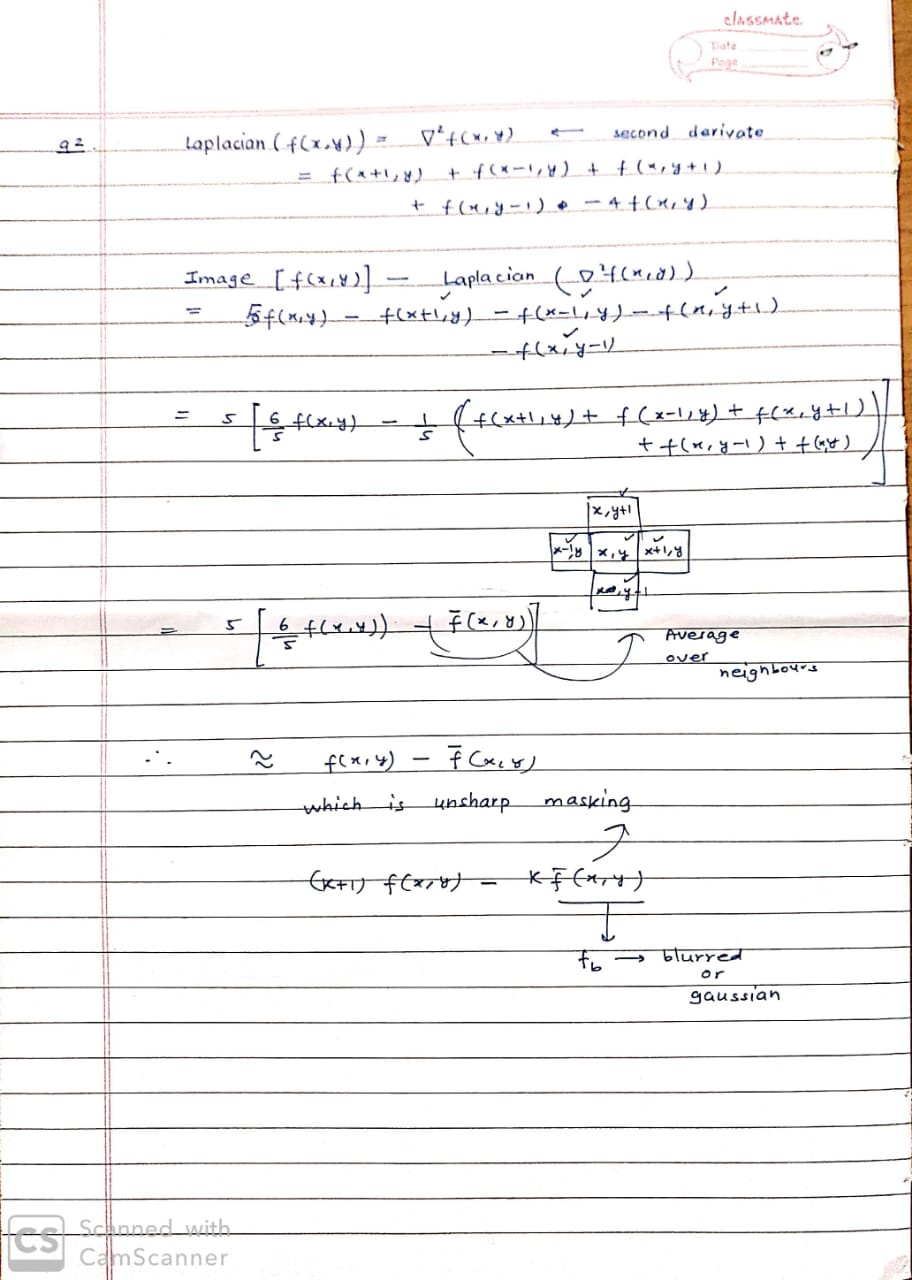 classmate
Date
Page
q2.
Laplacian (f(x,y)) = ∇²f(x,y) ← second derivate
= f(x+1,y) + f(x-1,y) + f(x,y+1)
+ f(x,y-1) - 4f(x,y)
Image [f(x,y)] - Laplacian (∇²f(x,y))
= 5f(x,y) - f(x+1,y) - f(x-1,y) - f(x,y+1)
- f(x,y-1)
= 5 [6/5 f(x,y) - 1/5 (f(x+1,y) + f(x-1,y) + f(x,y+1)
+ f(x,y-1) + f(x,y))]
x,y+1
x-1,y x,y x+1,y
x,y-1
= 5 [6/5 f(x,y)) - f̄(x,y)]
Average
over
neighbours
∴ ≈ f(x,y) - f̄(x,y)
which is unsharp masking
(K+1) f(x,y) - K f̄(x,y)
f_b → blurred
or
gaussian
CS Scanned with
CamScanner